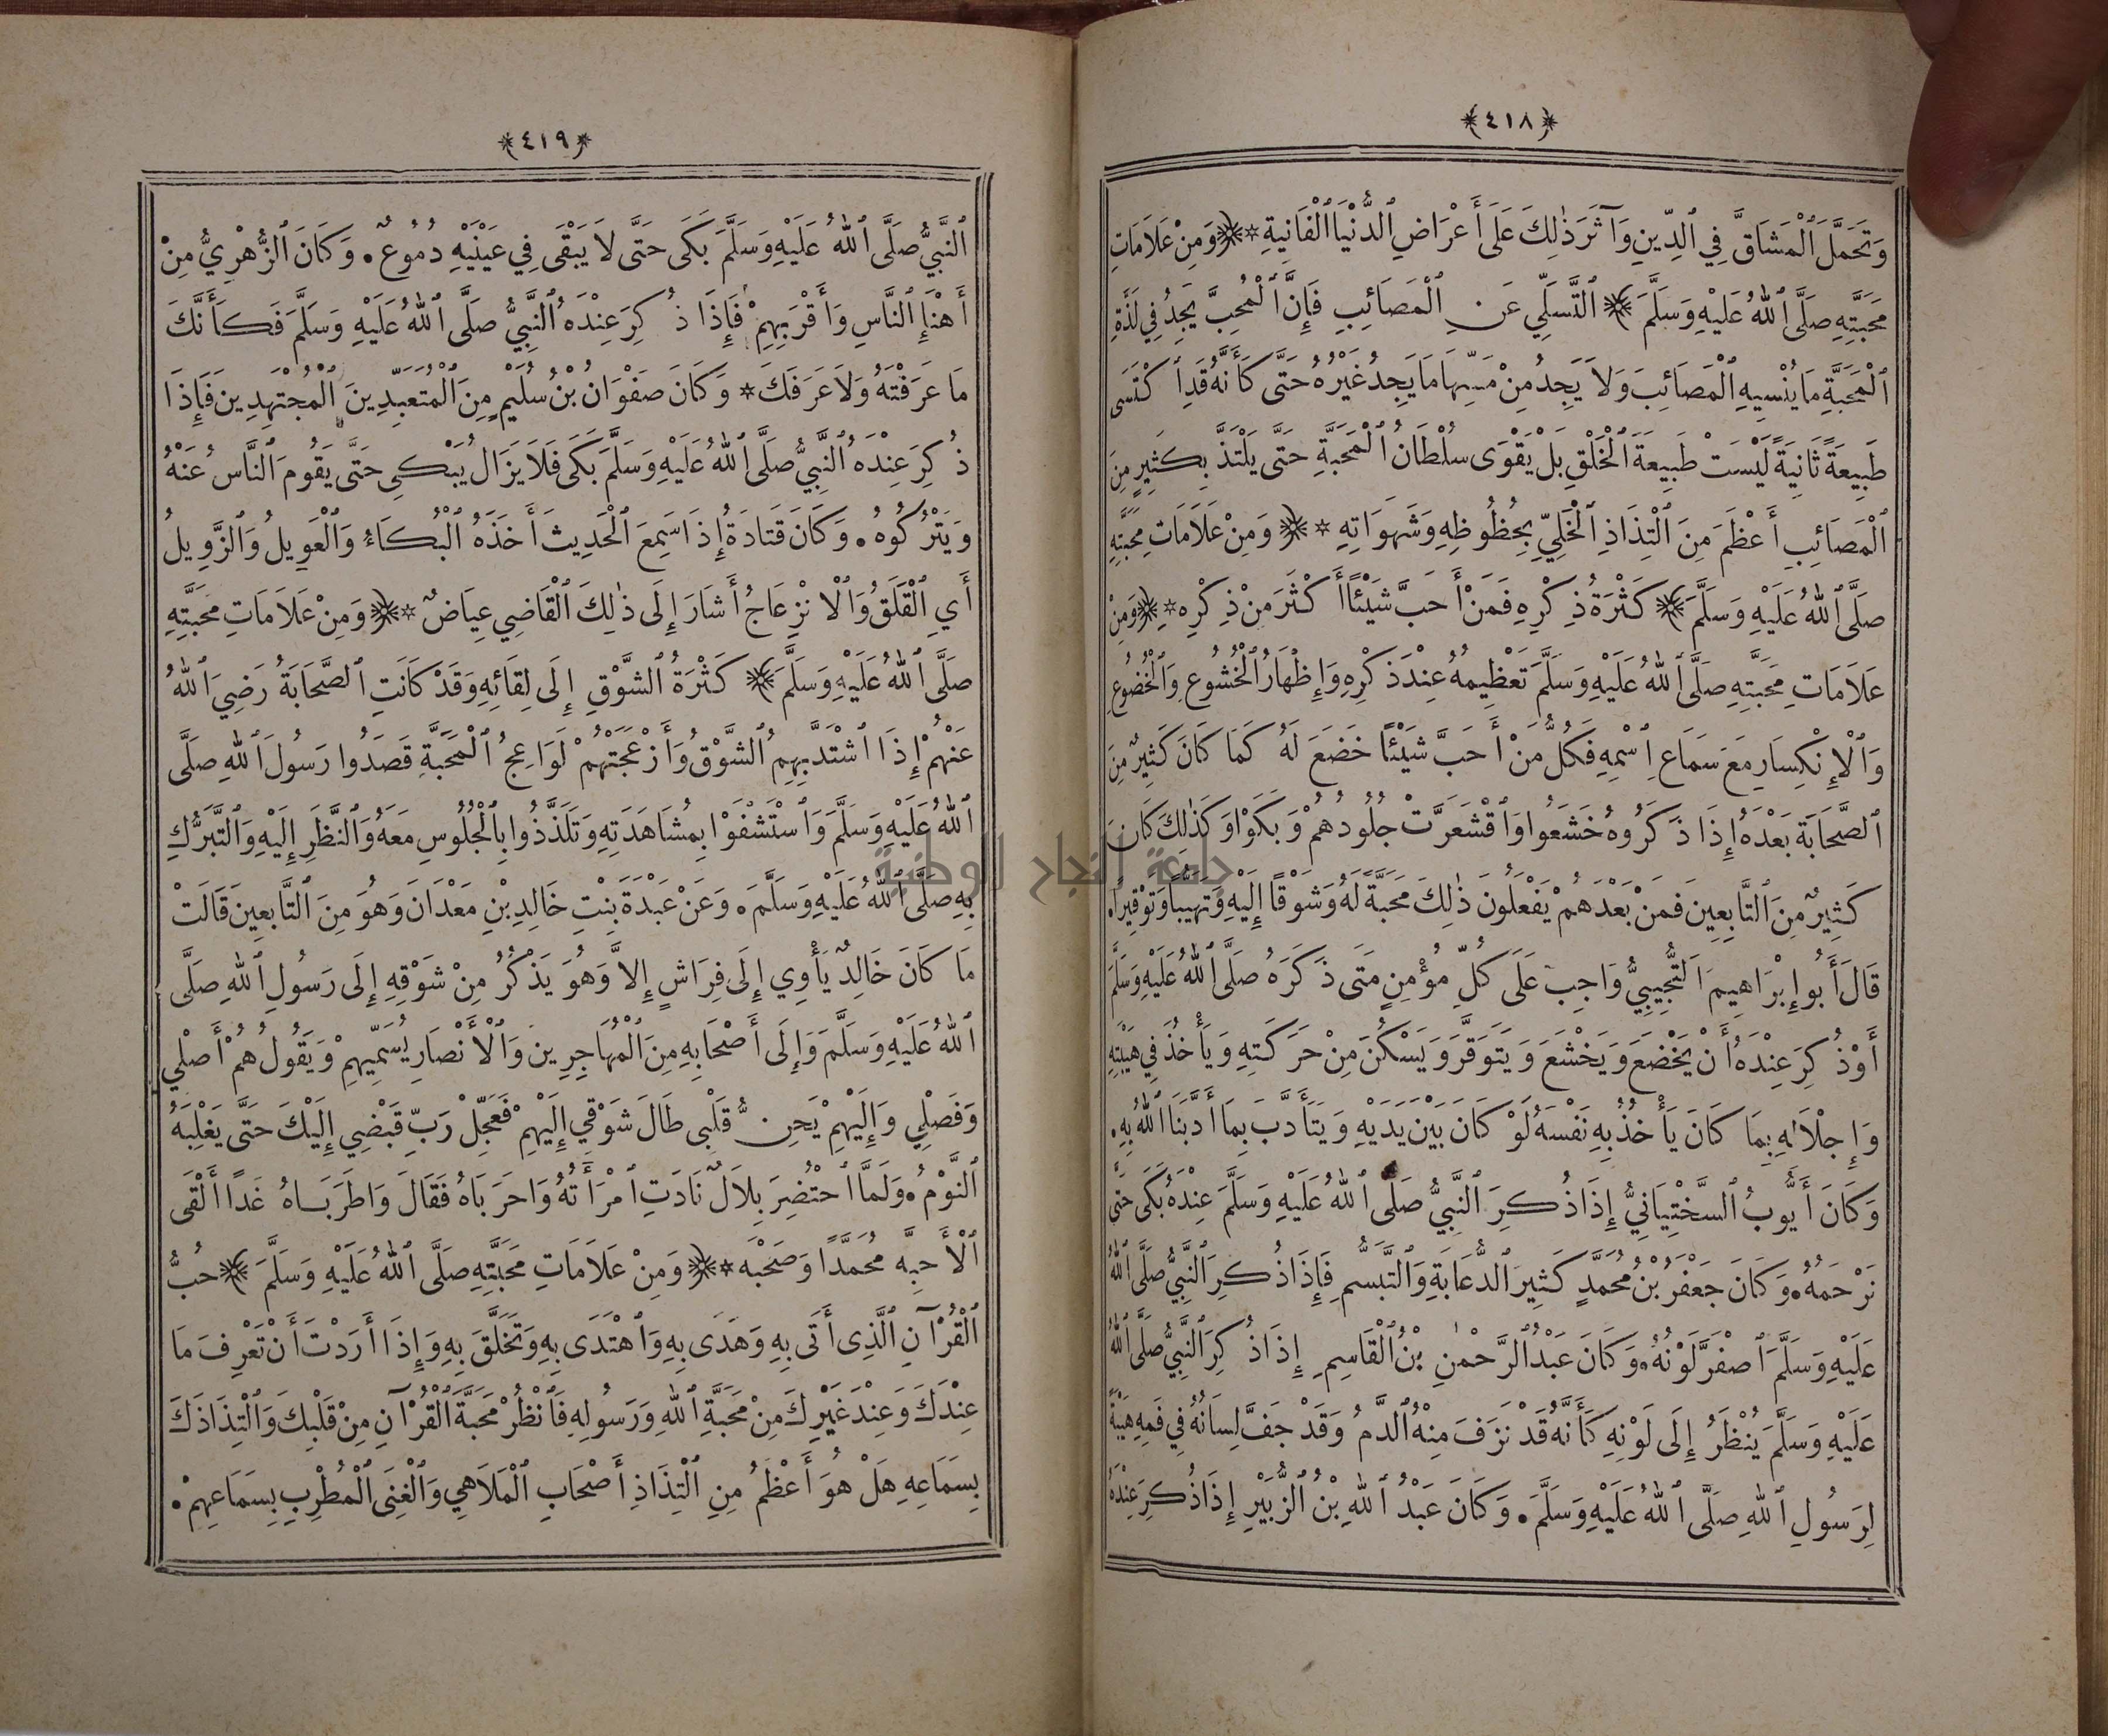 ﴿٤١٨﴾
وَتَحَمَّلَ ٱلْمَشَاقَّ فِي ٱلدِّينِ وَآثَرَ ذٰلِكَ عَلَى أَعْرَاضِ ٱلدُّنْيَا ٱلْفَانِيَةِ * ﴿وَمِنْ عَلَامَاتِ
مَحَبَّتِهِ صَلَّى ٱللهُ عَلَيْهِ وَسَلَّمَ﴾ ٱلتَّسَلِّي عَنِ ٱلْمَصَائِبِ فَإِنَّ ٱلْمُحِبَّ يَجِدُ فِي لَذَّةِ
ٱلْمَحَبَّةِ مَا يُنْسِيهِ ٱلْمَصَائِبَ وَلَا يَجِدُ مِنْ مَسِّهَا مَا يَجِدُ غَيْرُهُ حَتَّى كَأَنَّهُ قَدِ ٱكْتَسَى
طَبِيعَةً ثَانِيَةً لَيْسَتْ طَبِيعَةَ ٱلْخَلْقِ بَلْ يَقْوَى سُلْطَانُ ٱلْمَحَبَّةِ حَتَّى يَلْتَذَّ بِكَثِيرٍ مِنَ
ٱلْمَصَائِبِ أَعْظَمَ مِنَ ٱلْتِذَاذِ ٱلْخَلِيِّ بِحُظُوظِهِ وَشَهَوَاتِهِ * ﴿وَمِنْ عَلَامَاتِ مَحَبَّتِهِ
صَلَّى ٱللهُ عَلَيْهِ وَسَلَّمَ﴾ كَثْرَةُ ذِكْرِهِ فَمَنْ أَحَبَّ شَيْئًا أَكْثَرَ مِنْ ذِكْرِهِ * ﴿وَمِنْ
عَلَامَاتِ مَحَبَّتِهِ صَلَّى ٱللهُ عَلَيْهِ وَسَلَّمَ تَعْظِيمُهُ عِنْدَ ذِكْرِهِ وَإِظْهَارُ ٱلْخُشُوعِ وَٱلْخُضُوعِ
وَٱلْإِنْكِسَارِ مَعَ سَمَاعِ ٱسْمِهِ فَكُلُّ مَنْ أَحَبَّ شَيْئًا خَضَعَ لَهُ كَمَا كَانَ كَثِيرٌ مِنَ
ٱلصَّحَابَةِ بَعْدَهُ إِذَا ذَكَرُوهُ خَشَعُوا وَٱقْشَعَرَّتْ جُلُودُهُمْ وَبَكَوْا وَكَذٰلِكَ كَانَ
كَثِيرٌ مِنَ ٱلتَّابِعِينَ فَمَنْ بَعْدَهُمْ يَفْعَلُونَ ذٰلِكَ مَحَبَّةً لَهُ وَشَوْقًا إِلَيْهِ وَتَهَيُّبًا وَتَوْقِيرًا.
قَالَ أَبُو إِبْرَاهِيمَ ٱلتُّجِيبِيُّ وَاجِبٌ عَلَى كُلِّ مُؤْمِنٍ مَتَى ذَكَرَهُ صَلَّى ٱللهُ عَلَيْهِ وَسَلَّمَ
أَوْ ذُكِرَ عِنْدَهُ أَنْ يَخْضَعَ وَيَخْشَعَ وَيَتَوَقَّرَ وَيَسْكُنَ مِنْ حَرَكَتِهِ وَيَأْخُذَ فِي هَيْبَتِهِ
وَإِجْلَالِهِ بِمَا كَانَ يَأْخُذُ بِهِ نَفْسَهُ لَوْ كَانَ بَيْنَ يَدَيْهِ وَيَتَأَدَّبَ بِمَا أَدَّبَنَا ٱللهُ بِهِ.
وَكَانَ أَيُّوبُ ٱلسَّخْتِيَانِيُّ إِذَا ذُكِرَ ٱلنَّبِيُّ صَلَّى ٱللهُ عَلَيْهِ وَسَلَّمَ عِنْدَهُ بَكَى حَتَّى
نَرْحَمُهُ. وَكَانَ جَعْفَرُ بْنُ مُحَمَّدٍ كَثِيرَ ٱلدُّعَابَةِ وَٱلتَّبَسُّمِ فَإِذَا ذُكِرَ ٱلنَّبِيُّ صَلَّى ٱللهُ
عَلَيْهِ وَسَلَّمَ ٱصْفَرَّ لَوْنُهُ. وَكَانَ عَبْدُ ٱلرَّحْمٰنِ بْنُ ٱلْقَاسِمِ إِذَا ذُكِرَ ٱلنَّبِيُّ صَلَّى ٱللهُ
عَلَيْهِ وَسَلَّمَ يُنْظَرُ إِلَى لَوْنِهِ كَأَنَّهُ قَدْ نَزَفَ مِنْهُ ٱلدَّمُ وَقَدْ جَفَّ لِسَانُهُ فِي فَمِهِ هَيْبَةً
لِرَسُولِ ٱللهِ صَلَّى ٱللهُ عَلَيْهِ وَسَلَّمَ. وَكَانَ عَبْدُ ٱللهِ بْنُ ٱلزُّبَيْرِ إِذَا ذُكِرَ عِنْدَهُ
﴿٤١٩﴾
ٱلنَّبِيُّ صَلَّى ٱللهُ عَلَيْهِ وَسَلَّمَ بَكَى حَتَّى لَا يَبْقَى فِي عَيْنَيْهِ دُمُوعٌ. وَكَانَ ٱلزُّهْرِيُّ مِنْ
أَهْنَإِ ٱلنَّاسِ وَأَقْرَبِهِمْ فَإِذَا ذُكِرَ عِنْدَهُ ٱلنَّبِيُّ صَلَّى ٱللهُ عَلَيْهِ وَسَلَّمَ فَكَأَنَّكَ
مَا عَرَفْتَهُ وَلَا عَرَفَكَ * وَكَانَ صَفْوَانُ بْنُ سُلَيْمٍ مِنَ ٱلْمُتَعَبِّدِينَ ٱلْمُجْتَهِدِينَ فَإِذَا
ذُكِرَ عِنْدَهُ ٱلنَّبِيُّ صَلَّى ٱللهُ عَلَيْهِ وَسَلَّمَ بَكَى فَلَا يَزَالُ يَبْكِى حَتَّى يَقُومَ ٱلنَّاسُ عَنْهُ
وَيَتْرُكُوهُ. وَكَانَ قَتَادَةُ إِذَا سَمِعَ ٱلْحَدِيثَ أَخَذَهُ ٱلْبُكَاءُ وَٱلْعَوِيلُ وَٱلزَّوِيلُ
أَيِ ٱلْقَلَقُ وَٱلْانْزِعَاجُ أَشَارَ إِلَى ذٰلِكَ ٱلْقَاضِي عِيَاضٌ * ﴿وَمِنْ عَلَامَاتِ مَحَبَّتِهِ
صَلَّى ٱللهُ عَلَيْهِ وَسَلَّمَ﴾ كَثْرَةُ ٱلشَّوْقِ إِلَى لِقَائِهِ وَقَدْ كَانَتِ ٱلصَّحَابَةُ رَضِيَ ٱللهُ
عَنْهُمْ إِذَا ٱشْتَدَّ بِهِمُ ٱلشَّوْقُ وَأَزْعَجَتْهُمْ لَوَاعِجُ ٱلْمَحَبَّةِ قَصَدُوا رَسُولَ ٱللهِ صَلَّى
ٱللهُ عَلَيْهِ وَسَلَّمَ وَٱسْتَشْفَوْا بِمُشَاهَدَتِهِ وَتَلَذَّذُوا بِٱلْجُلُوسِ مَعَهُ وَٱلنَّظَرِ إِلَيْهِ وَٱلتَّبَرُّكِ
بِهِ صَلَّى ٱللهُ عَلَيْهِ وَسَلَّمَ. وَعَنْ عَبْدَةَ بِنْتِ خَالِدِ بْنِ مَعْدَانَ وَهُوَ مِنَ ٱلتَّابِعِينَ قَالَتْ
مَا كَانَ خَالِدٌ يَأْوِي إِلَى فِرَاشٍ إِلَّا وَهُوَ يَذْكُرُ مِنْ شَوْقِهِ إِلَى رَسُولِ ٱللهِ صَلَّى
ٱللهُ عَلَيْهِ وَسَلَّمَ وَإِلَى أَصْحَابِهِ مِنَ ٱلْمُهَاجِرِينَ وَٱلْأَنْصَارِ يُسَمِّيهِمْ وَيَقُولُ هُمْ أَصْلِي
وَفَصْلِي وَإِلَيْهِمْ يَحِنُّ قَلْبِى طَالَ شَوْقِي إِلَيْهِمْ فَعَجِّلْ رَبِّ قَبْضِي إِلَيْكَ حَتَّى يَغْلِبَهُ
ٱلنَّوْمُ. وَلَمَّا ٱحْتُضِرَ بِلَالٌ نَادَتِ ٱمْرَأَتُهُ وَاحَرَبَاهُ فَقَالَ وَاطَرَبَاهُ غَدًا أَلْقَى
ٱلْأَحِبَّه مُحَمَّدًا وَصَحْبَه * ﴿وَمِنْ عَلَامَاتِ مَحَبَّتِهِ صَلَّى ٱللهُ عَلَيْهِ وَسَلَّمَ﴾ حُبُّ
ٱلْقُرْآنِ ٱلَّذِى أَتَى بِهِ وَهَدَى بِهِ وَٱهْتَدَى بِهِ وَتَخَلَّقَ بِهِ وَإِذَا أَرَدْتَ أَنْ تَعْرِفَ مَا
عِنْدَكَ وَعِنْدَ غَيْرِكَ مِنْ مَحَبَّةِ ٱللهِ وَرَسُولِهِ فَٱنْظُرْ مَحَبَّةَ ٱلْقُرْآنِ مِنْ قَلْبِكَ وَٱلْتِذَاذَكَ
بِسَمَاعِهِ هَلْ هُوَ أَعْظَمُ مِنِ ٱلْتِذَاذِ أَصْحَابِ ٱلْمَلَاهِي وَٱلْغِنَى ٱلْمُطْرِبِ بِسَمَاعِهِمْ.
جامعة النجاح الوطنية